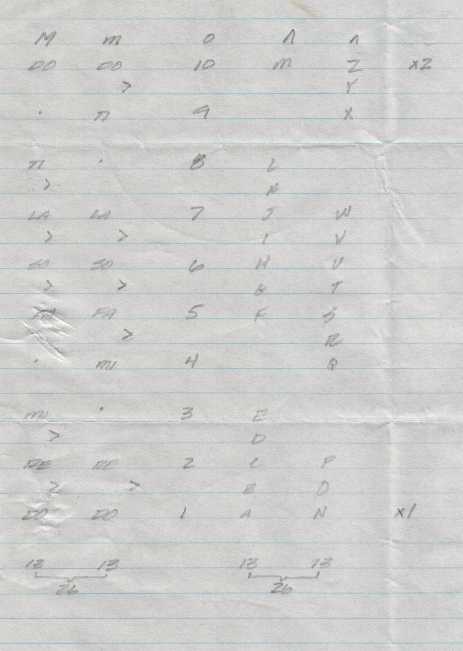 M m 0 Λ n
DO DO 10 M Z x2
> Y
. TI 9 X
TI . 8 L
> K
LA LA 7 J W
> > I V
SO SO 6 H U
> > G T
FA FA 5 F S
> R
. MI 4 Q
MI . 3 E
> D
RE RE 2 C P
> > B O
DO DO 1 A N x1
13 13 13 13
26 26